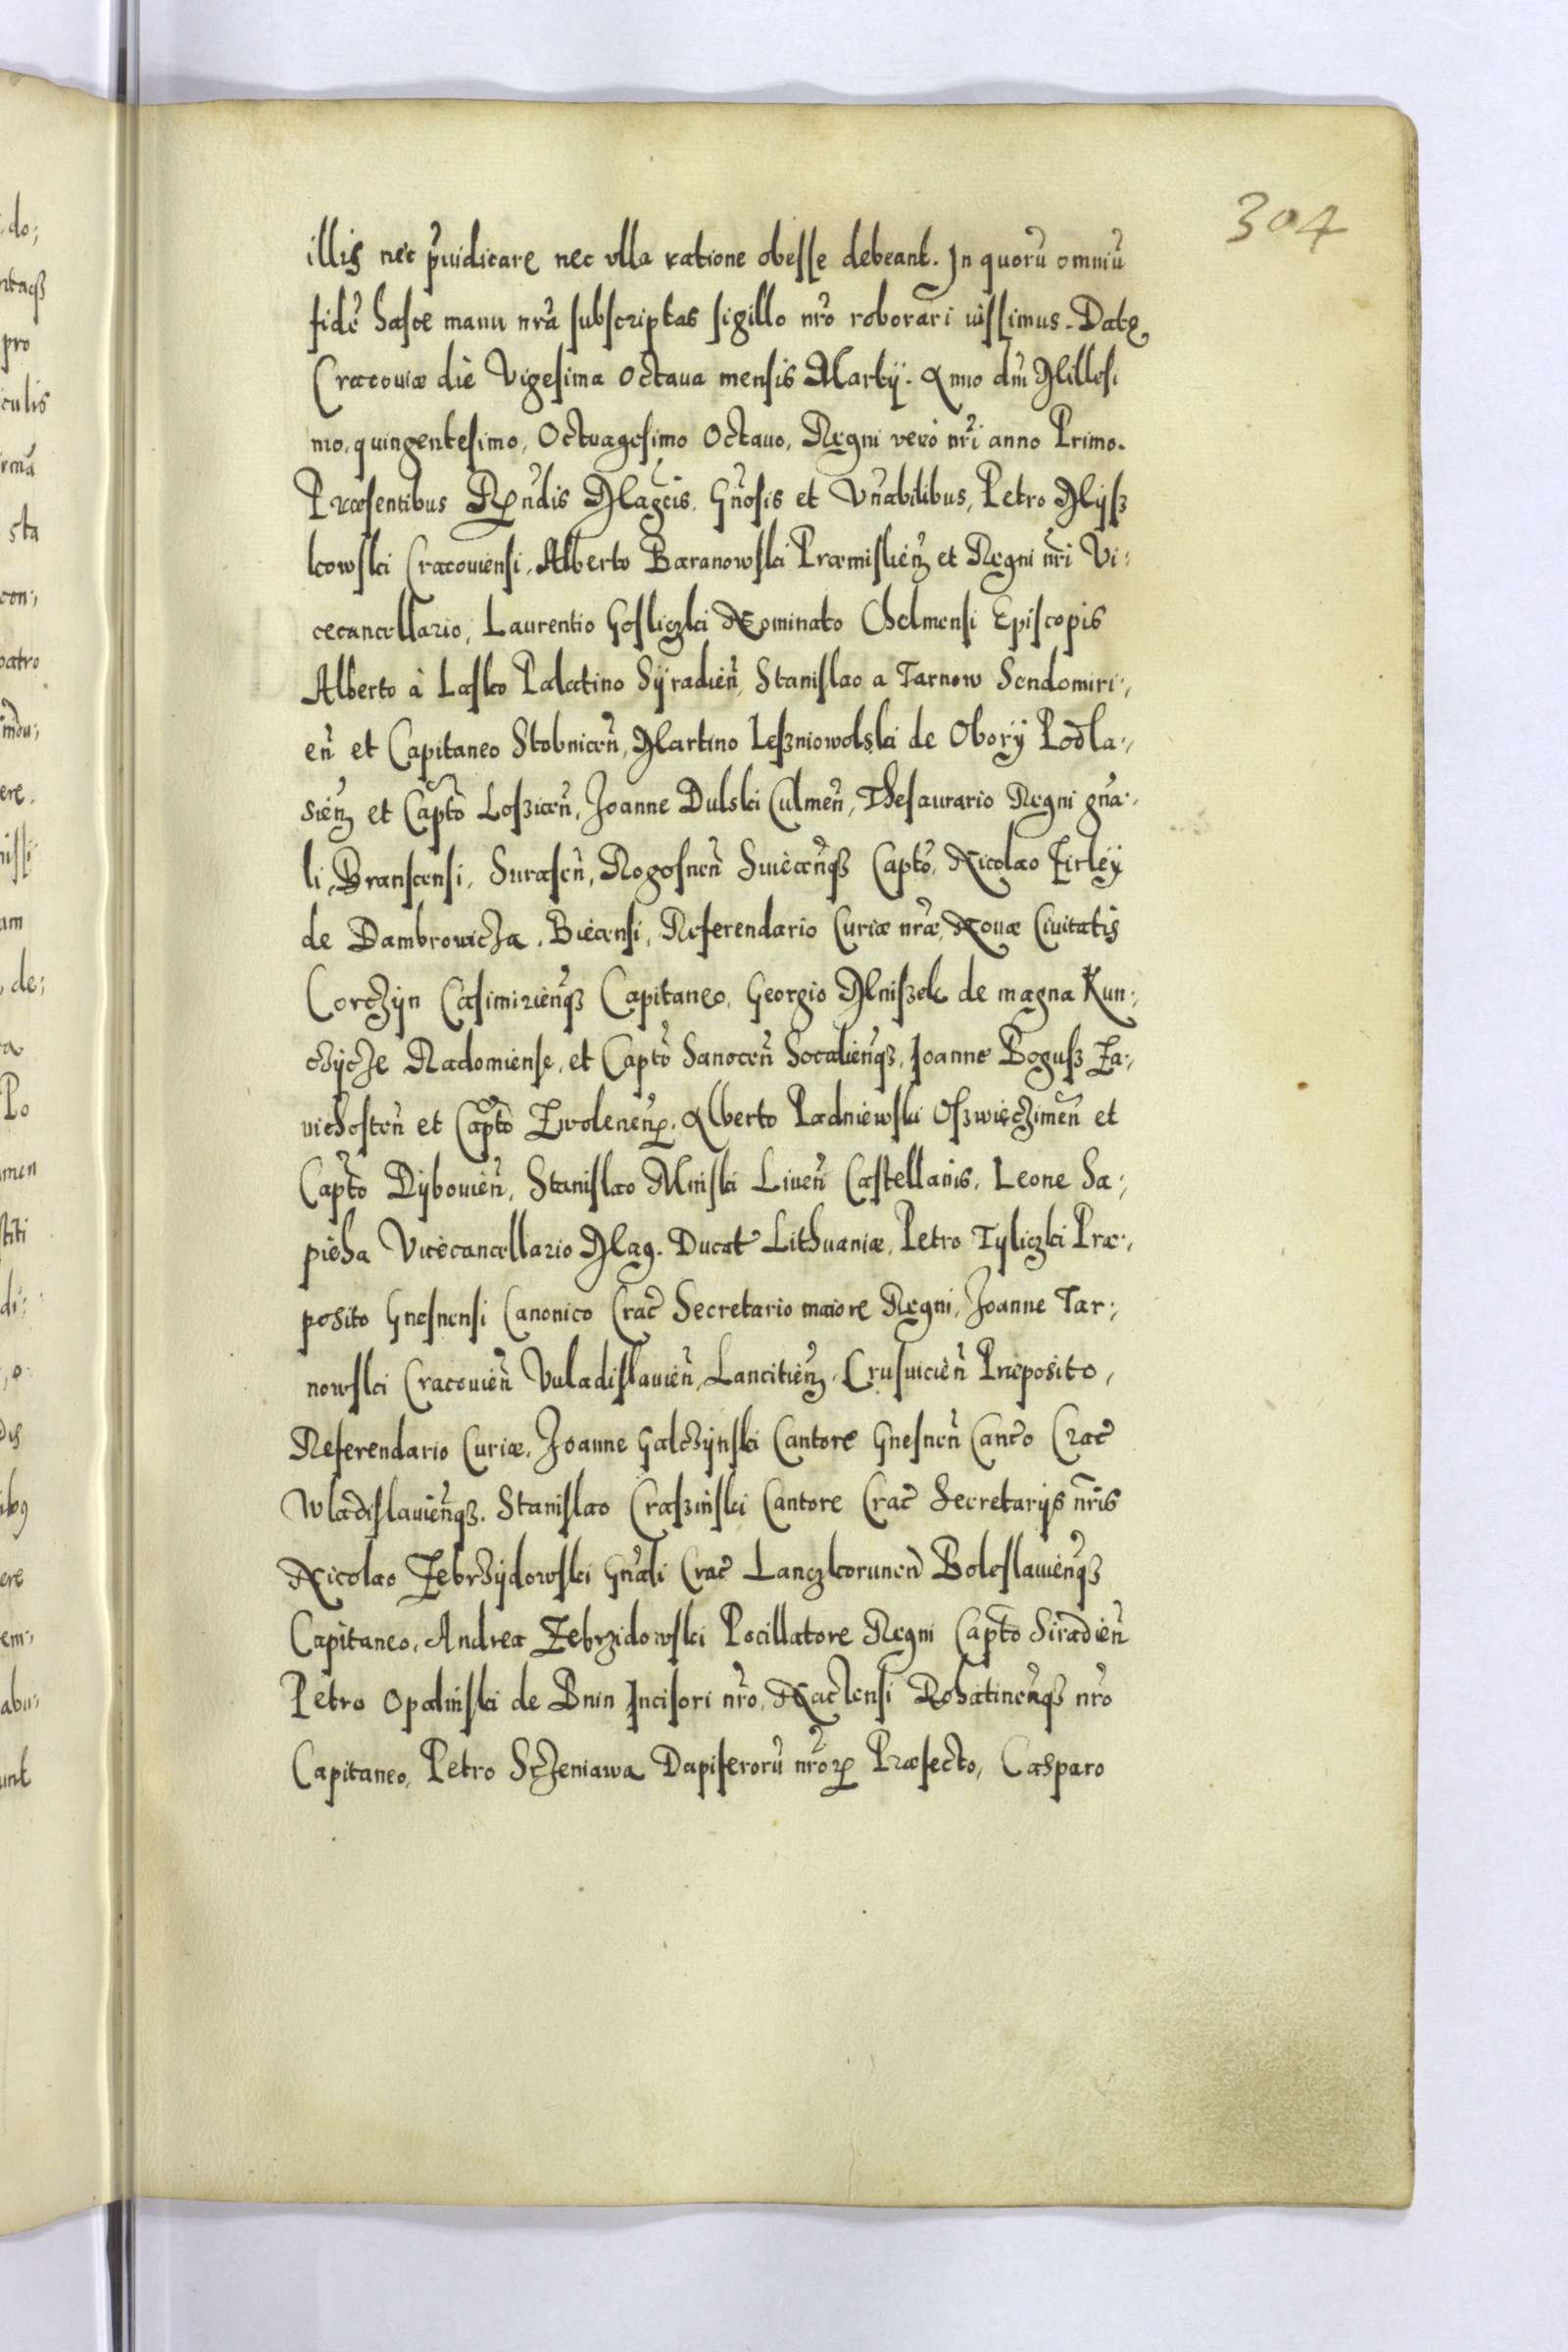 304
illis nec p̃iudicare nec vlla ratione obesse debeant. In quorũ omniũ
fidẽ hasce manu nrã subscriptas sigillo nrõ roborari iussimus. Datę
Cracouiæ die Vigesima Octaua mensis Martij. Anno dni Millesi
mo, quingentesimo, Octuagesimo Octauo, Regni verò nrĩ anno Primo.
Præsentibus Rndis Magcis, Gñosis et Vñabilibus, Petro Mijs
kowski Cracouiensi, Alberto Baranowski Præmislien̄ et Regni nrĩ Vi:
cecancellario, Laurentio Gosliczki Nominato Chelmensi Episcopis
Alberto à Lasko Palatino Syradien̄, Stanislao a Tarnow Sendomiri:,
en̄ et Capitaneo Stobnicen̄, Martino Leszniowolski de Obory Podla:,
sien̄ et Captõ Loszicen̄, Joanne Dulski Culmen̄, Thesaurario Regni gña:,
li, Branscensi, Surasen̄, Rogosnen̄ Suiecen̄qз Captõ, Nicolao Firleÿ
de Dambrowicza, Biecensi, Referendario Curiæ nræ, Nouæ Ciuitatis
Corczyn Casimirien̄qз Capitaneo, Georgio Mniszek de magna Kun:,
czycze Radomiense, et Captõ Sanocen̄ Socalien̄qз, Joanne Bogusz Za:,
uichosten̄ et Captõ Zwolenen̄, Alberto Padniewski Oszwięczimen̄ et
Captõ Dybouien̄, Stanislao Minski Liuen̄ Castellanis, Leone Sa:,
pieha Vicecancellario Mag. Ducat9 Lithuaniæ, Petro Tyliczki Præ:,
posito Gnesnensi Canonico Crac̃ Secretario maiore Regni, Joanne Tar:,
nowski Cracouien̄ Vuladislauien̄, Lancitien̄, Crusuicien̄ Præposito,
Referendario Curiæ, Joanne Galczynski Cantore Gnesnen̄ Canco Crac̃
Wladislauien̄qз. Stanislao Craszinski Cantore Crac̃ Secretarijs nrĩs
Nicolao Zebrzydowski Gñali Crac̃ Lanczkorunen̄ Boleslauien̄qз
Capitaneo, Andrea Zebrzidowski Pocillatore Regni Captõ Siradien̄
Petro Opalinski de Bnin Incisori nrõ, Naclensi Rohatinen̄qз nrõ
Capitaneo, Petro Sczeniawa Dapiferorũ nrõꝝ Præfecto, Casparo